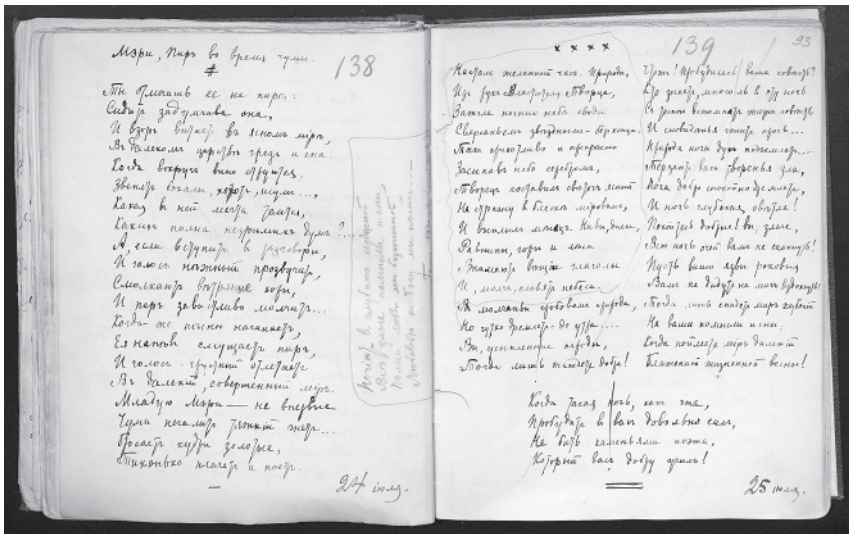 Мэри, Пиръ во время чумы.
138
Ты отличишь ее на пирѣ:
Сидитъ задумчива она,
И взоръ витаетъ въ ясномъ мірѣ,
Въ далекомъ царствѣ грезъ и сна.
Когда вокругъ вино струится,
Звенятъ бокалы, хохотъ, шумъ...,
Какая въ ней мечта таится,
Какихъ полна незримыхъ думъ?...
А, если вступитъ въ разговоры,
И голосъ нѣжный прозвучитъ,
Смолкаютъ хоры,
И пиръ молчитъ...
Когда же пѣсню начинаетъ,
Ея напѣвъ слушаетъ пиръ,
И голосъ грустный отлетаетъ
Въ далекій, совершенный міръ.
Младую Мэри — не впервые
Чумы печалитъ тяжкій гнетъ...
Бросаетъ кудри золотые,
Тихонько плачетъ и поетъ.
24 іюля.
× × × ×
139
93
Насталъ желанный часъ. Природа,
Изъ рукъ Властителя Творца,
Зажгла ночныя неба своды
Сверканьемъ звѣзднымъ безъ конца.
Такъ прихотливо и прекрасно
Засыпавъ небо серебромъ,
Творецъ поставилъ свѣточъ ясный
На стражу въ блескѣ міровомъ,
И выплылъ мѣсяцъ. Нивы, долы,
Равнины, горы и лѣса
Внимаютъ вѣщіе глаголы
И, молча, славятъ небеса.
Въ молчаньи гробовомъ природа,
Но чутко дремлетъ до утра....
Вы, усыпленные народы,
Тогда лишь жаждете добра!
Чтожъ! Пробудилась ваша совѣсть?
Кто знаетъ, много ль въ эту ночь
Съ тоской вспоминать жизни повѣсть
И сновидѣнья гонятъ прочь...
Природа ночи духъ подъемлетъ...
Терзаютъ васъ творенья зла,
Когда добро спокойно дремлетъ,
И ночь глубокая свѣтла!
Покойтесь добрые! Вы, злые,
Всю ночь очей вамъ не сомкнуть!
Пусть ваши язвы роковыя
Вамъ не дадутъ на мигъ вздохнуть!
Тогда лишь
На ваши и сны,
Когда міръ далекій
Блаженной жизненной весны!
Когда такая ночь, какъ эта,
Пробудитъ въ васъ довольно силъ,
Не бить каменьями поэта,
Который васъ добру училъ!
25 іюля.